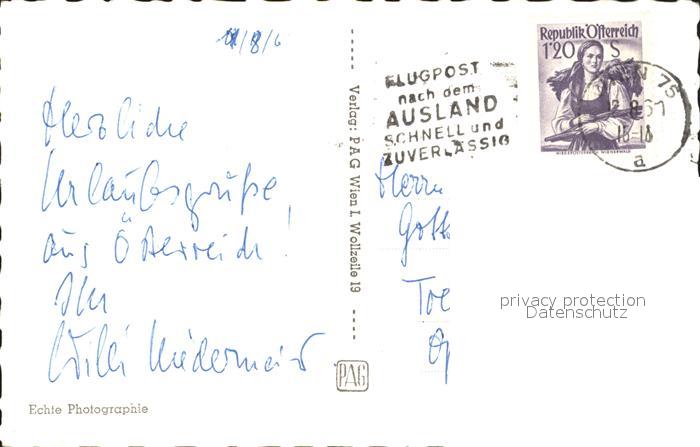 11/8/6
Herzliche
Urlaubsgrüße
aus Österreich!
Ihr
Willi Niedermeier.
Echte Photographie
Verlag: PAG Wien I, Wollzeile 19
PAG
FLUGPOST
nach dem
AUSLAND
SCHNELL und
ZUVERLÄSSIG
Republik Österreich
1'20 S
WIEN 75
8.61
18-18
a
Herrn
Gott
Toe
privacy protection
Datenschutz